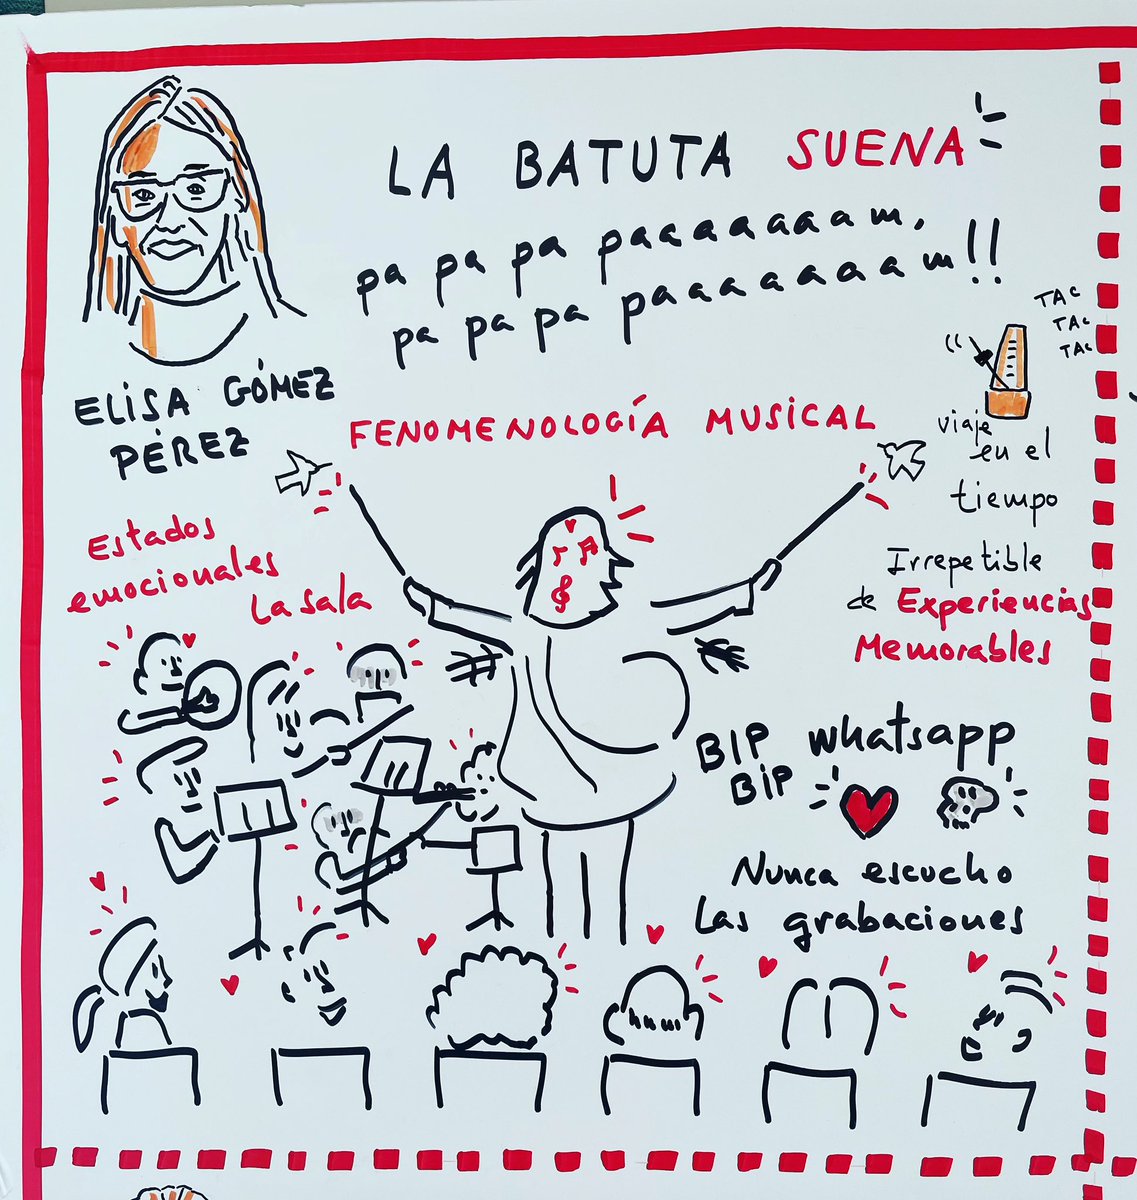 LA BATUTA SUENA
pa pa pa paaaaaaam,
pa pa pa paaaaaaam!!
ELISA GÓMEZ
PÉREZ
TAC
TAC
TAC
FENOMENOLOGÍA MUSICAL
viaje
en el
tiempo
Estados
emocionales
La sala
Irrepetible
de Experiencias
Memorables
BIP whatsapp
BIP
Nunca escucho
las grabaciones